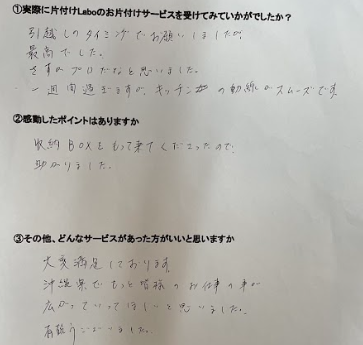 ①実際に片付けLaboのお片付けサービスを受けてみていかがでしたか？
引越しのタイミングでお願いしましたが、
最高でした。
さすがプロだなと思いました。
一週間過ぎますが、キッチン の動線がスムーズです。
②感動したポイントはありますか
収納BOXをもって来てくださったので
助かりました。
③その他、どんなサービスがあった方がいいと思いますか
大変満足しております。
沖縄県でもっと皆様のお仕事の事が
広がっていってほしいと思いました。
有難うございました。